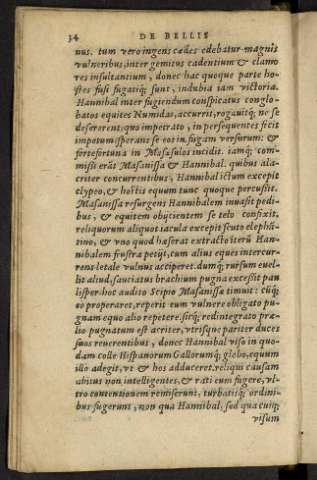 34 DE BELLIS
nus. tum vero ingens cædes edebatur magnis
vulneribus, inter gemitus cadentium & clamo
res insultantium, donec hac quoque parte ho-
stes fusi fugatiq́; sunt, indubia iam victoria.
Hannibal inter fugiendum conspicatus conglo-
batos equites Numidas, accurrit, rogauitq́; ne se
desererent: quo impetrato, in persequentes fecit
impetum sperans se eos in fugam versurum: &
forte fortuna in Masæsulos incidit. iamq́; com-
missi erāt Masanissa & Hannibal. quibus ala-
criter concurrentibus, Hannibal ictum excepit
clypeo, & hostis equum tunc quoque percussit.
Masanissa resurgens Hannibalem inuasit pedi-
bus, & equitem obijcientem se telo confixit,
reliquorum aliquot iacula excepit scuto elephā-
tino, & vno quod hæserat extracto iterū Han-
nibalem frustra petijt, tum alius eques intercur-
rens letale vulnus acciperet. dumq́; rursum euel-
lit aliud, sauciatus brachium pugna excessit pau
lisper. hoc audito Scipio Masanissæ timuit: cūq́;
eo properaret, reperit tum vulnere obligato pu-
gnam equo alio repetere. sicq́; redintegrato præ-
lio pugnatum est acriter, vtrisque pariter duces
suos reuerentibus, donec Hannibal viso in quo-
dam colle Hispanorum Gallorumq́; globo, equum
illo adegit, vt & hos adduceret. reliqui causam
abitus non intelligentes, & rati eum fugere, vl-
tro contentionem remiserunt, turbatisq́; ordini-
bus fugerunt, non qua Hannibal, sed qua cuiq;
visum